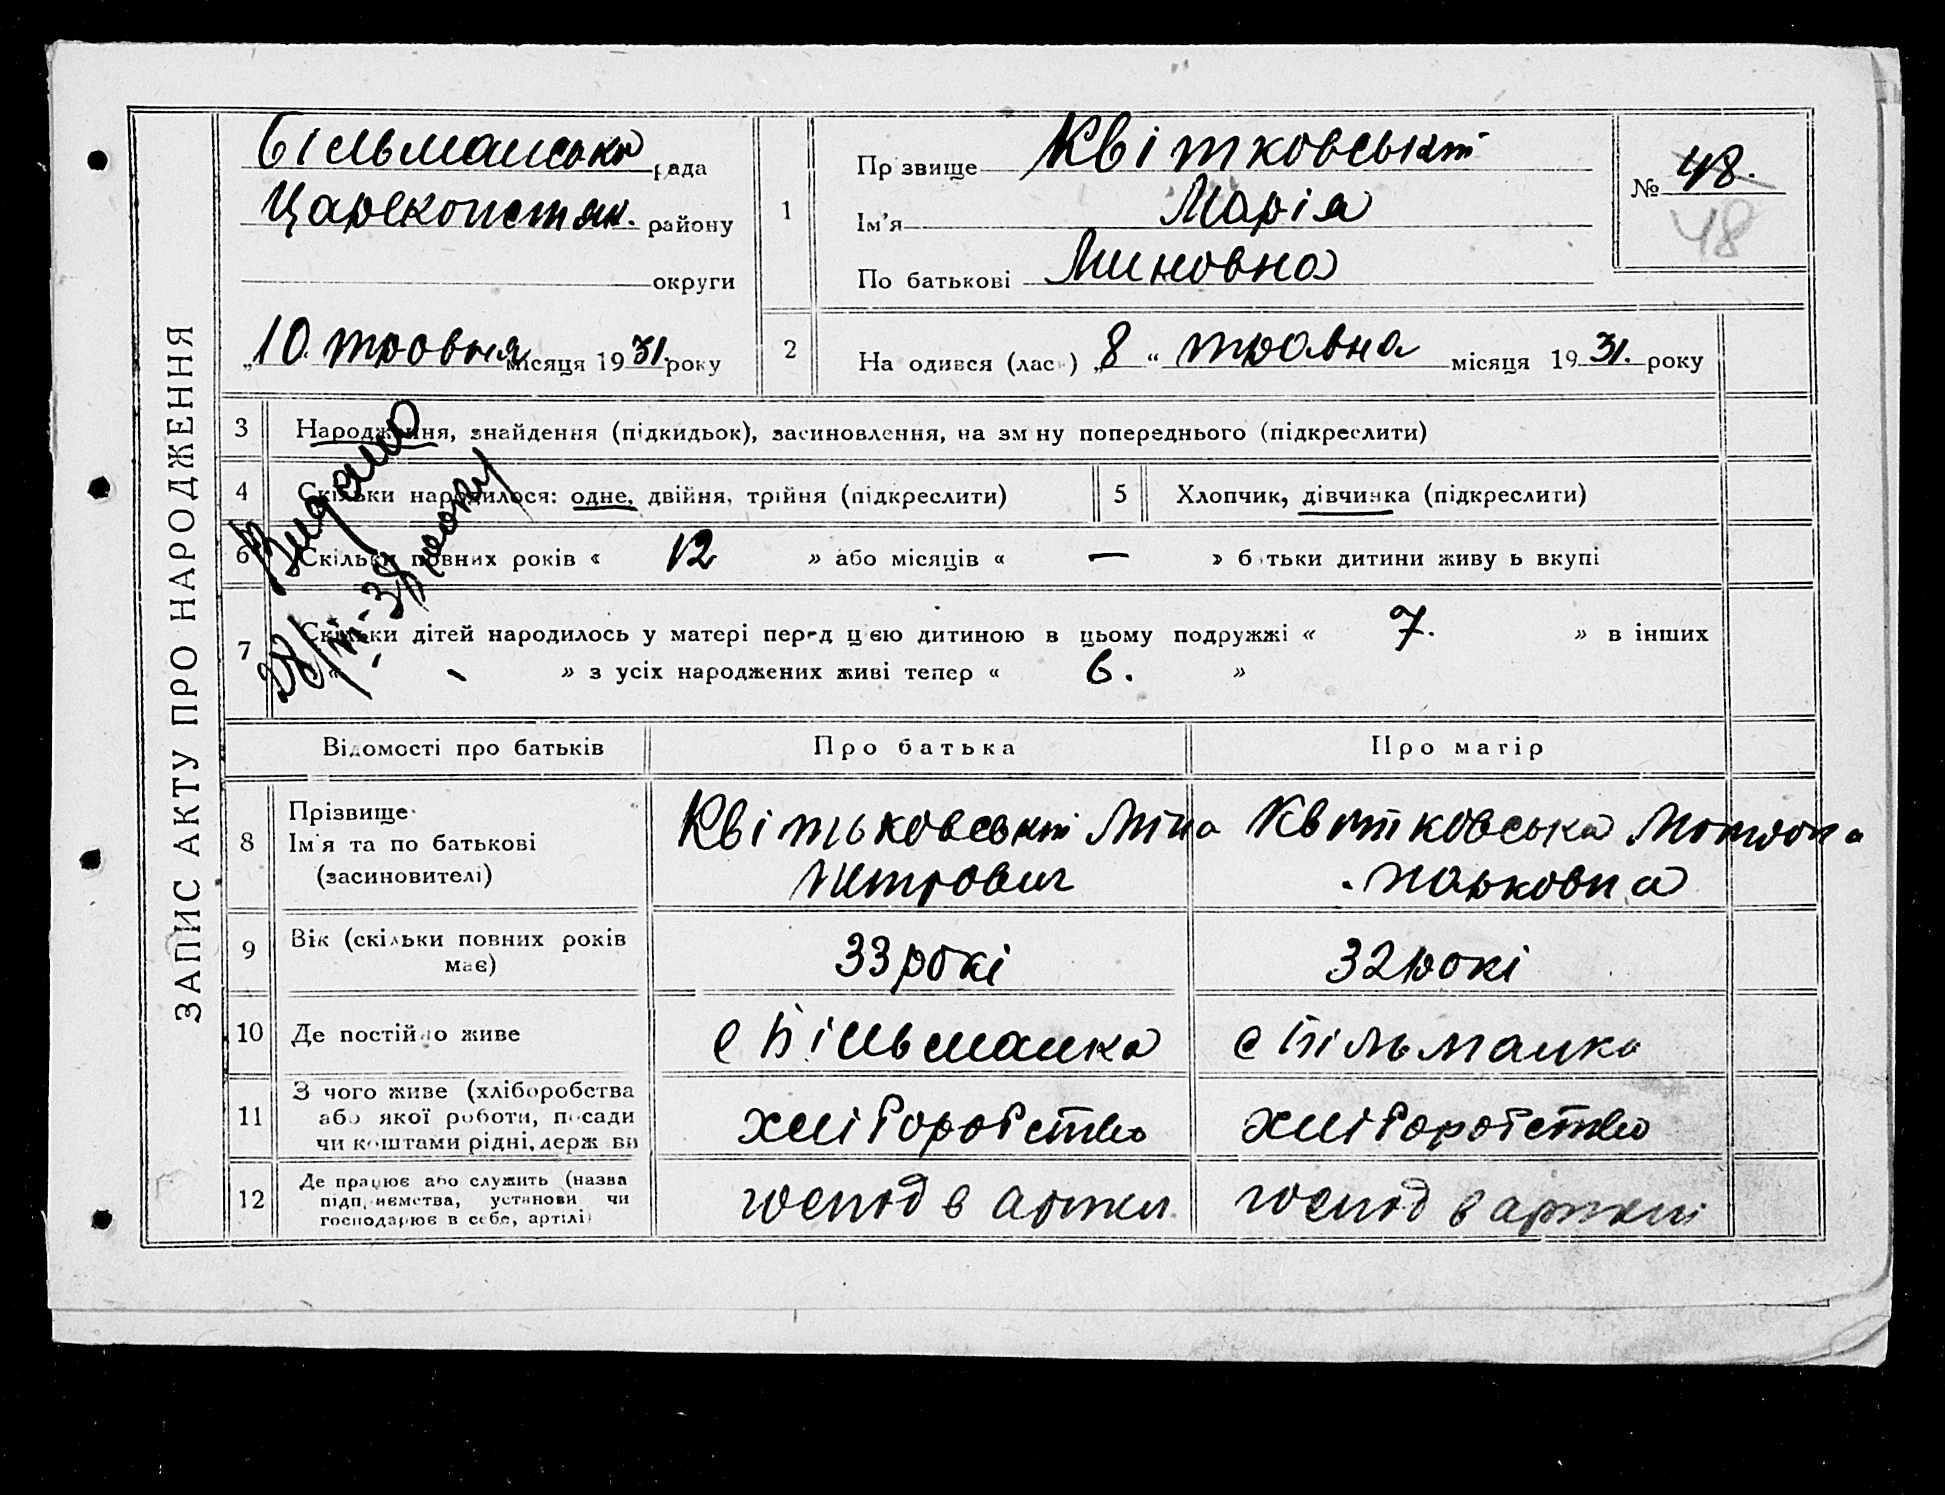 ЗАПИС АКТУ ПРО НАРОДЖЕННЯ
Більманська рада
Царекопстян. району
округи
„10. травня місяця 1931. року
1
Прізвище Квітковський
Ім'я Марія
По батькові Миновна
№ 48.
48
2
Народився (лась) „8“ травна місяця 1931. року
3 Народження, знайдення (підкидьок), засиновлення, на зміну попереднього (підкреслити)
4 Скільки народилося: одне, двійня, трійня (підкреслити)
5 Хлопчик, дівчинка (підкреслити)
6 Скільки повних років « 12 » або місяців « — » батьки дитини живуть вкупі
7 Скільки дітей народилось у матері перед цією дитиною в цьому подружжі « 7. » в інших
« » з усіх народжених живі тепер « 6. »
Видано
28/VII-38 року
Відомості про батьків
Про батька
Про матір
8 Прізвище
Ім'я та по батькові
(засиновителі)
Квітьковський Міна
Петрович
Квитковська Мотрона
Марковна
9 Вік (скільки повних років
має)
33 рокі
32 рокі
10 Де постійно живе
с Більманка
с Більманка
11 З чого живе (хліборобства
або якої роботи, посади
чи коштами рідні, держави
хліборобство
хліборобство
12 Де працює або служить (назва
підприємства, установи чи
господарює в себе, артілі)
господ в артил.
господ в артілі